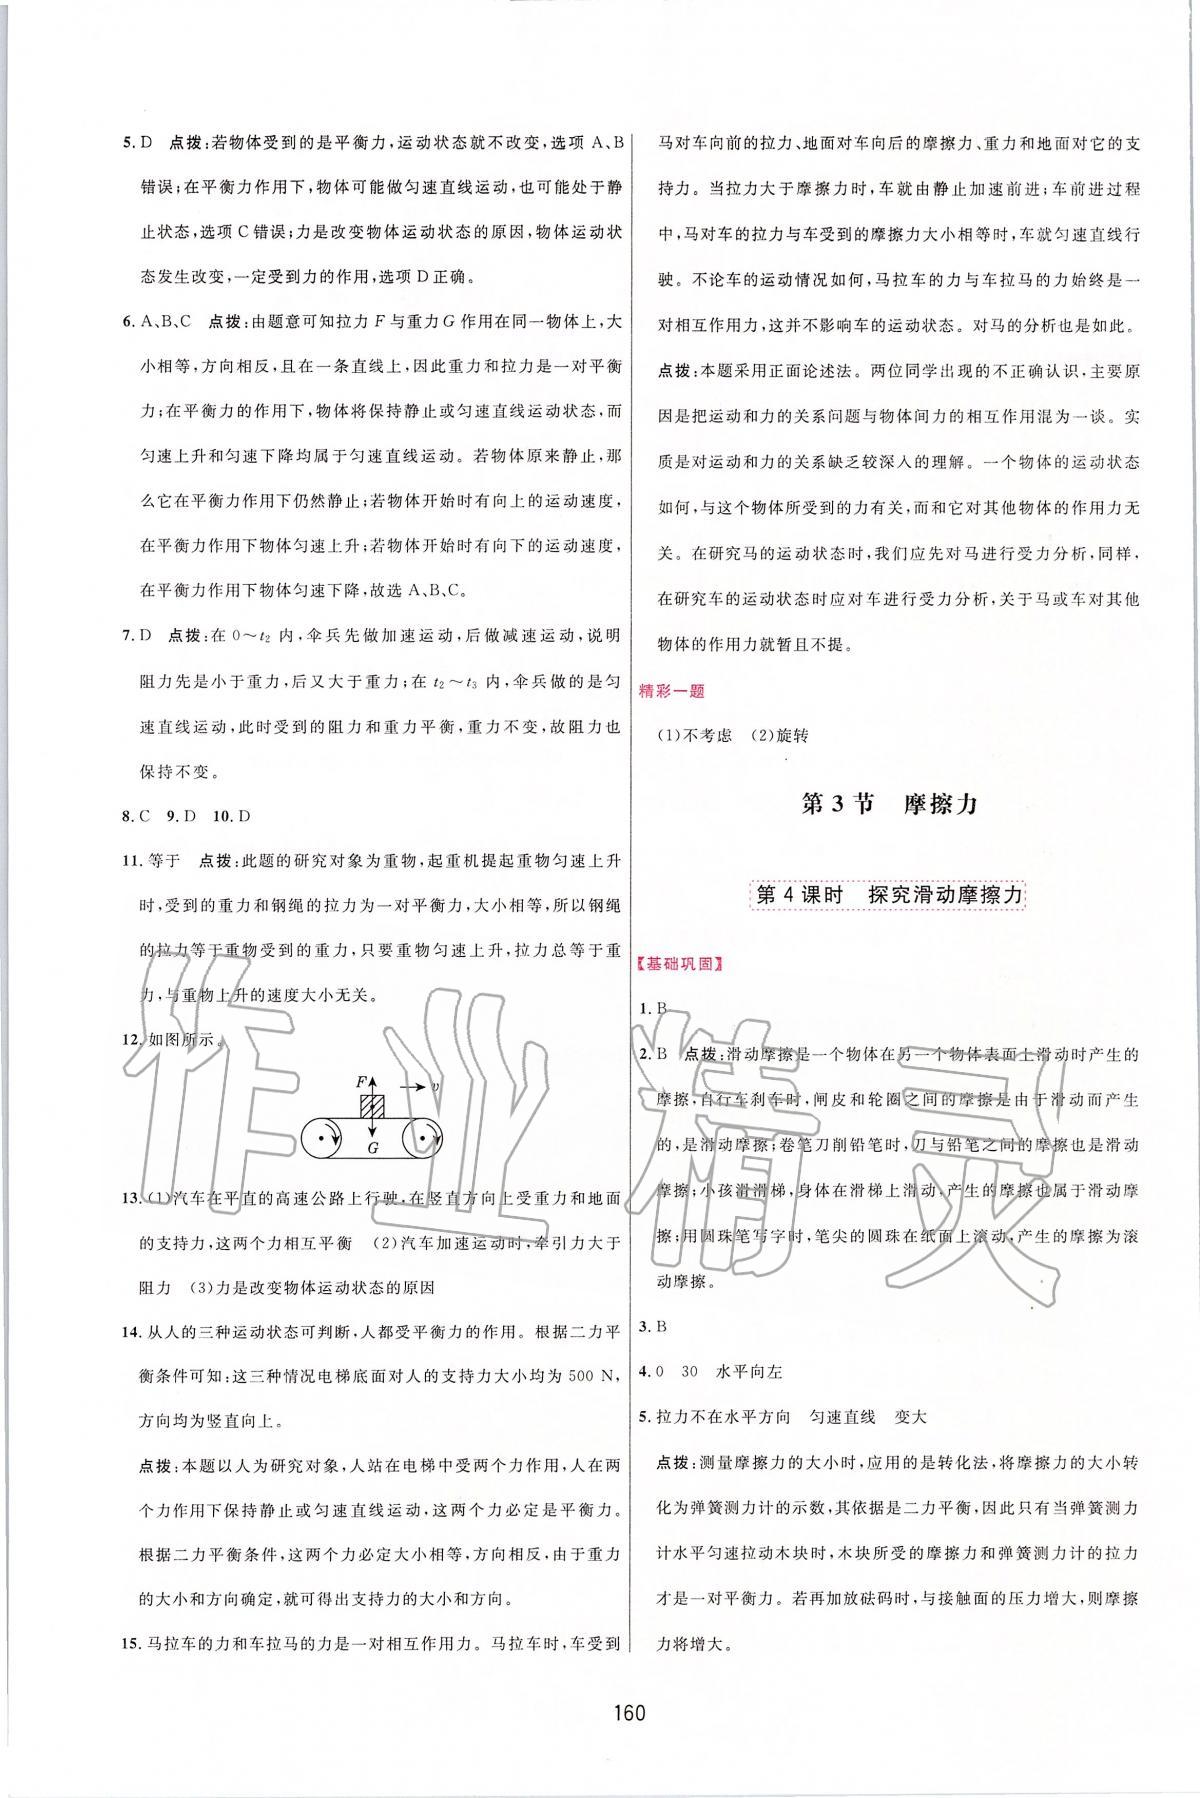 5. D　点拨:若物体受到的是平衡力,运动状态就不改变,选项 A、B
错误;在平衡力作用下,物体可能做匀速直线运动,也可能处于静
止状态,选项 C 错误;力是改变物体运动状态的原因,物体运动状
态发生改变,一定受到力的作用,选项 D 正确。
6. A、B、C　点拨:由题意可知拉力 F 与重力 G 作用在同一物体上,大
小相等,方向相反,且在一条直线上,因此重力和拉力是一对平衡
力;在平衡力的作用下,物体将保持静止或匀速直线运动状态,而
匀速上升和匀速下降均属于匀速直线运动。若物体原来静止,那
么它在平衡力作用下仍然静止;若物体开始时有向上的运动速度,
在平衡力作用下物体匀速上升;若物体开始时有向下的运动速度,
在平衡力作用下物体匀速下降,故选 A、B、C。
7. D　点拨:在 0～t₂ 内,伞兵先做加速运动,后做减速运动,说明
阻力先是小于重力,后又大于重力;在 t₂～t₃ 内,伞兵做的是匀
速直线运动,此时受到的阻力和重力平衡,重力不变,故阻力也
保持不变。
8. C　9. D　10. D
11. 等于　点拨:此题的研究对象为重物,起重机提起重物匀速上升
时,受到的重力和钢绳的拉力为一对平衡力,大小相等,所以钢绳
的拉力等于重物受到的重力,只要重物匀速上升,拉力总等于重
力,与重物上升的速度大小无关。
12. 如图所示。
F
v
G
13. (1)汽车在平直的高速公路上行驶,在竖直方向上受重力和地面
的支持力,这两个力相互平衡　(2)汽车加速运动时,牵引力大于
阻力　(3)力是改变物体运动状态的原因
14. 从人的三种运动状态可判断,人都受平衡力的作用。根据二力平
衡条件可知:这三种情况电梯底面对人的支持力大小均为 500 N,
方向均为竖直向上。
点拨:本题以人为研究对象,人站在电梯中受两个力作用,人在两
个力作用下保持静止或匀速直线运动,这两个力必定是平衡力。
根据二力平衡条件,这两个力必定大小相等,方向相反,由于重力
的大小和方向确定,就可得出支持力的大小和方向。
15. 马拉车的力和车拉马的力是一对相互作用力。马拉车时,车受到
马对车向前的拉力、地面对车向后的摩擦力、重力和地面对它的支
持力。当拉力大于摩擦力时,车就由静止加速前进;车前进过程
中,马对车的拉力与车受到的摩擦力大小相等时,车就匀速直线行
驶。不论车的运动情况如何,马拉车的力与车拉马的力始终是一
对相互作用力,这并不影响车的运动状态。对马的分析也是如此。
点拨:本题采用正面论述法。两位同学出现的不正确认识,主要原
因是把运动和力的关系问题与物体间力的相互作用混为一谈。实
质是对运动和力的关系缺乏较深入的理解。一个物体的运动状态
如何,与这个物体所受到的力有关,而和它对其他物体的作用力无
关。在研究马的运动状态时,我们应先对马进行受力分析,同样,
在研究车的运动状态时应对车进行受力分析,关于马或车对其他
物体的作用力就暂且不提。
精彩一题
(1)不考虑　(2)旋转
第 3 节　摩擦力
第 4 课时　探究滑动摩擦力
【基础巩固】
1. B
2. B　点拨:滑动摩擦是一个物体在另一个物体表面上滑动时产生的
摩擦,自行车刹车时,闸皮和轮圈之间的摩擦是由于滑动而产生
的,是滑动摩擦;卷笔刀削铅笔时,刀与铅笔之间的摩擦也是滑动
摩擦;小孩滑滑梯,身体在滑梯上滑动,产生的摩擦也属于滑动摩
擦;用圆珠笔写字时,笔尖的圆珠在纸面上滚动,产生的摩擦为滚
动摩擦。
3. B
4. 0　30　水平向左
5. 拉力不在水平方向　匀速直线　变大
点拨:测量摩擦力的大小时,应用的是转化法,将摩擦力的大小转
化为弹簧测力计的示数,其依据是二力平衡,因此只有当弹簧测力
计水平匀速拉动木块时,木块所受的摩擦力和弹簧测力计的拉力
才是一对平衡力。若再加放砝码时,与接触面的压力增大,则摩擦
力将增大。
160
作业精灵